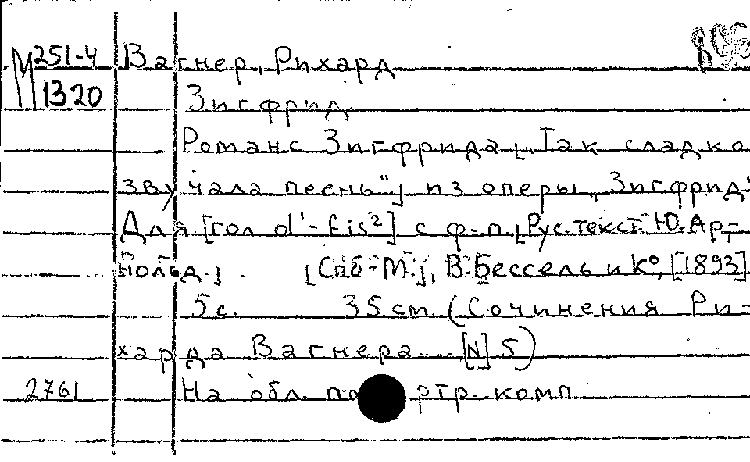 М 251-4 Вагнер, Рихард
1320 Зигфрид
Романс Зигфрида [„Так сладко
звучала песнь"] из оперы „Зигфрид"
Для [гол d'-fis²] с ф-п. [Рус. текст Ю. Ар-
нольд.] [Спб-М.], В. Бессель и Kº, [1893]
5 с. 35 cm. (Сочинения Ри-
харда Вагнера. [N] 5)
2761 На обл. портр. комп.